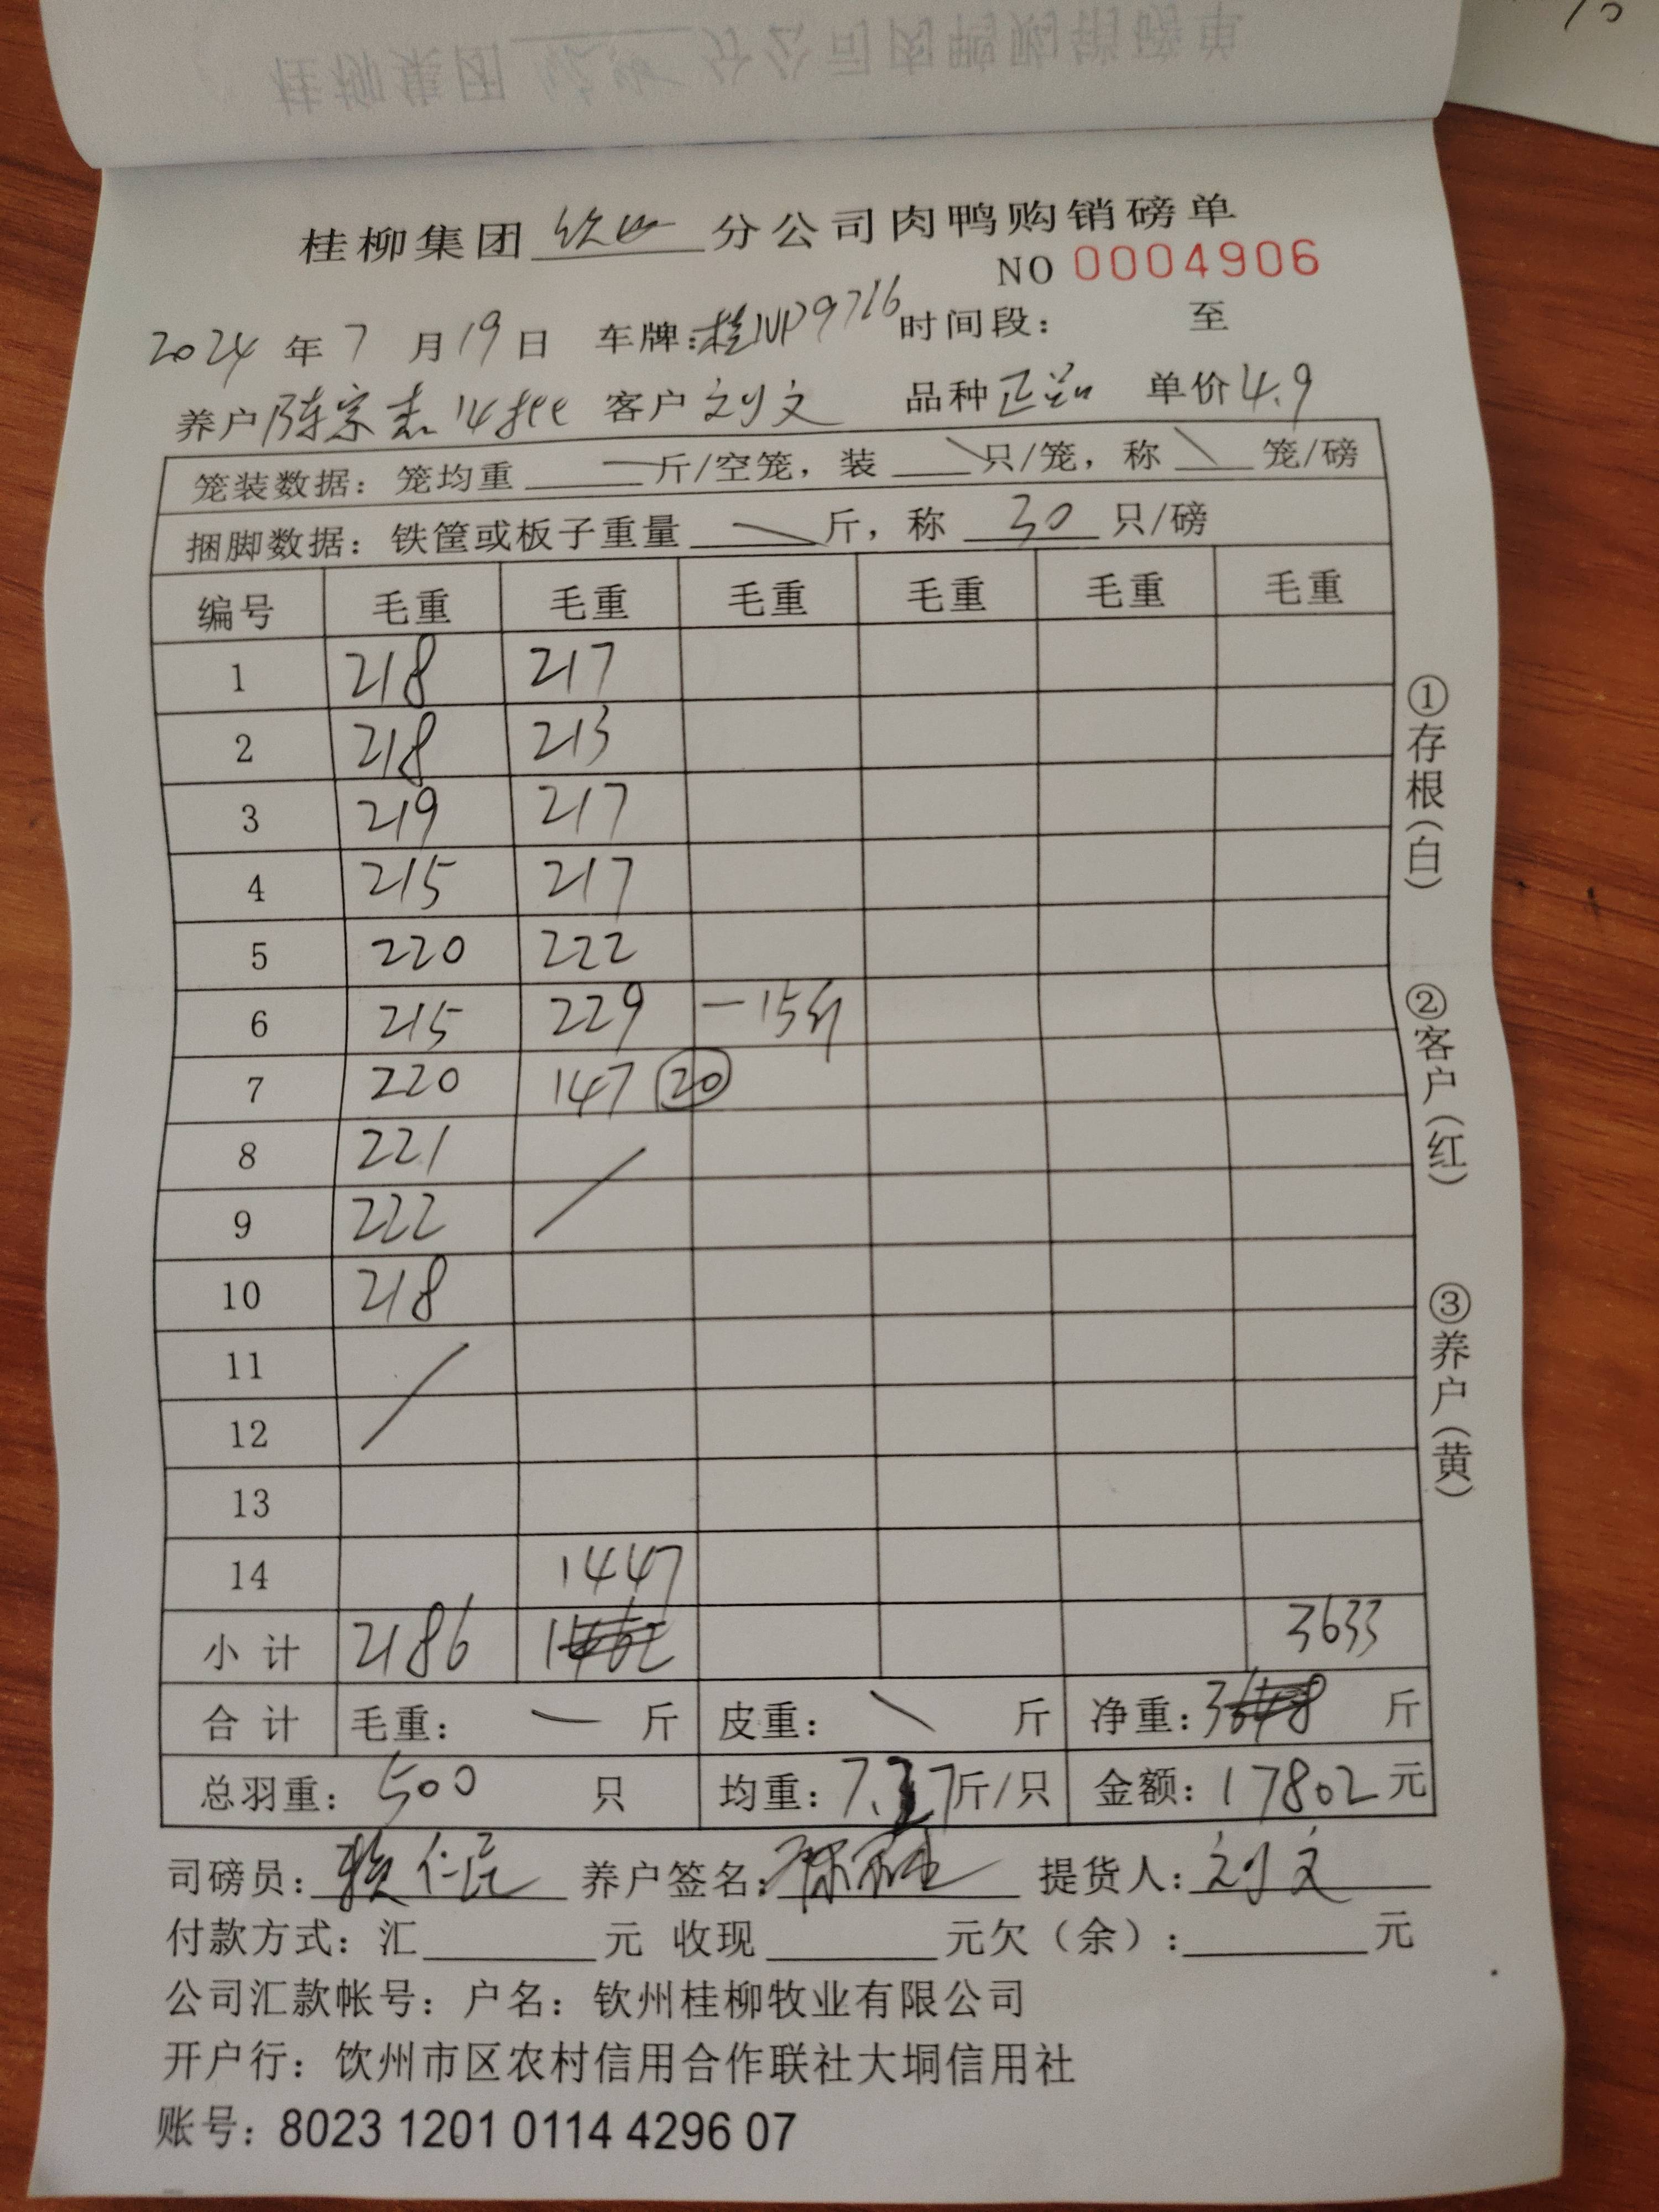 桂柳集团 钦州 分公司肉鸭购销磅单
NO 0004906
2024 年 7 月 19 日 车牌:桂NP9716 时间段: 至
养户 陈宗志 14批 客户 刘文 品种 正品 单价 4.9
笼装数据: 笼均重 — 斤/空笼, 装 \ 只/笼, 称 \ 笼/磅
捆脚数据: 铁筐或板子重量 \ 斤, 称 30 只/磅
编号 毛重 毛重 毛重 毛重 毛重 毛重
1 218 217
2 218 213
3 219 217
4 215 217
5 220 222
6 215 229 -15斤
7 220 147 20
8 221
9 222
10 218
11
12
13
14 1447
小计 2186 3633
合计 毛重: — 斤 皮重: \ 斤 净重: 斤
总羽重: 500 只 均重: 7.27 斤/只 金额: 17802 元
司磅员: 养户签名: 提货人: 刘文
付款方式: 汇 元 收现 元欠(余): 元
公司汇款帐号: 户名: 钦州桂柳牧业有限公司
开户行: 饮州市区农村信用合作联社大垌信用社
账号: 8023 1201 0114 4296 07
①存根(白)
②客户(红)
③养户(黄)